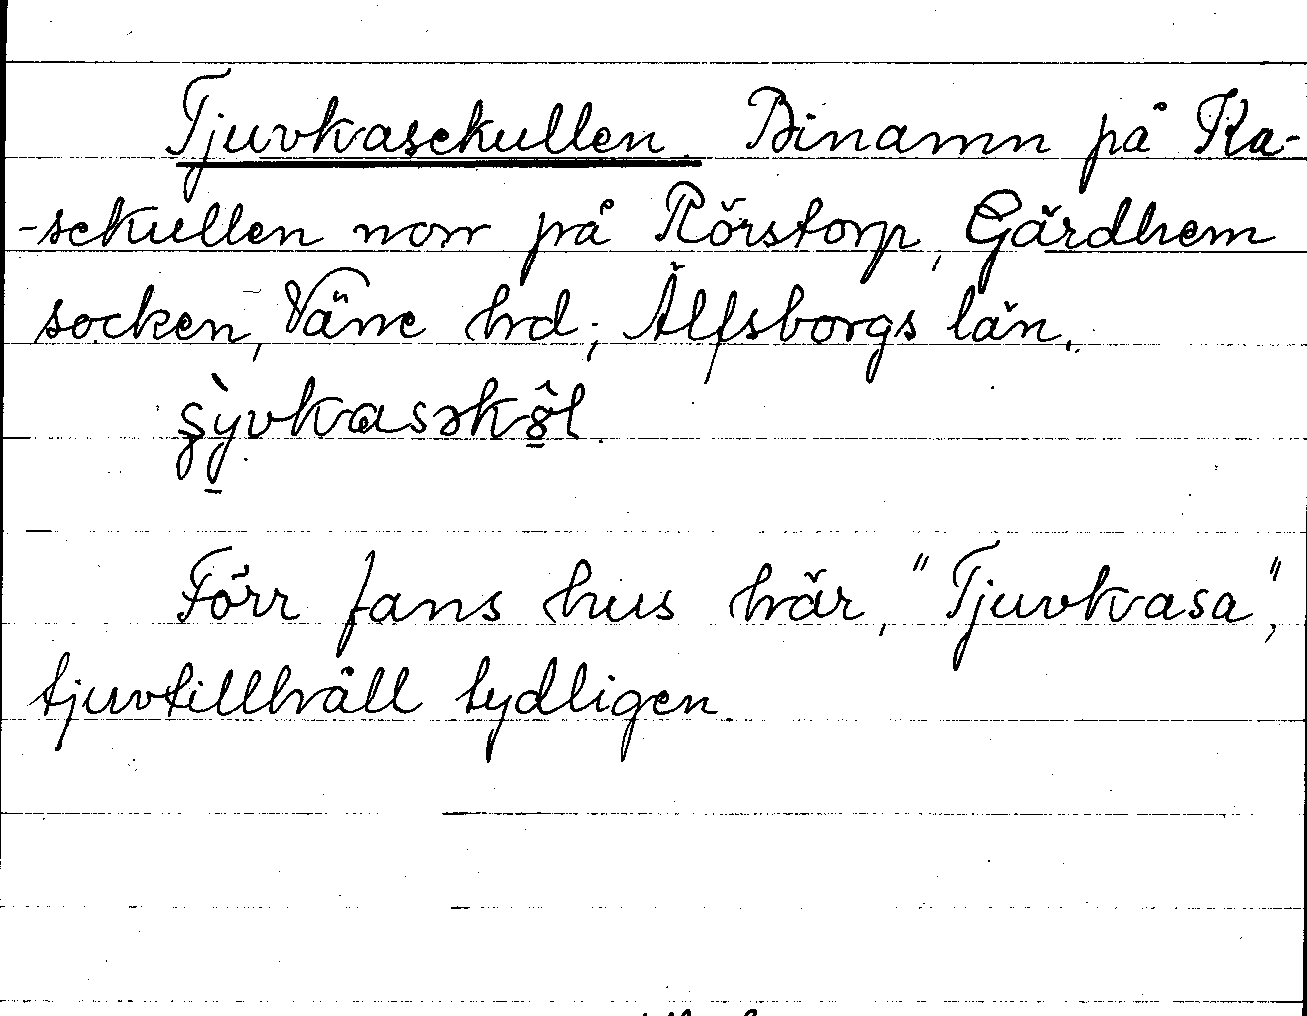 Tjuvkasekullen. Binamn på Ka-
-sekullen norr på Rörstorp, Gärdhem
socken, Väne hrd; Älfsborgs län.
Förr fans hus här, "Tjuvkasa",
tjuvtillhåll tydligen